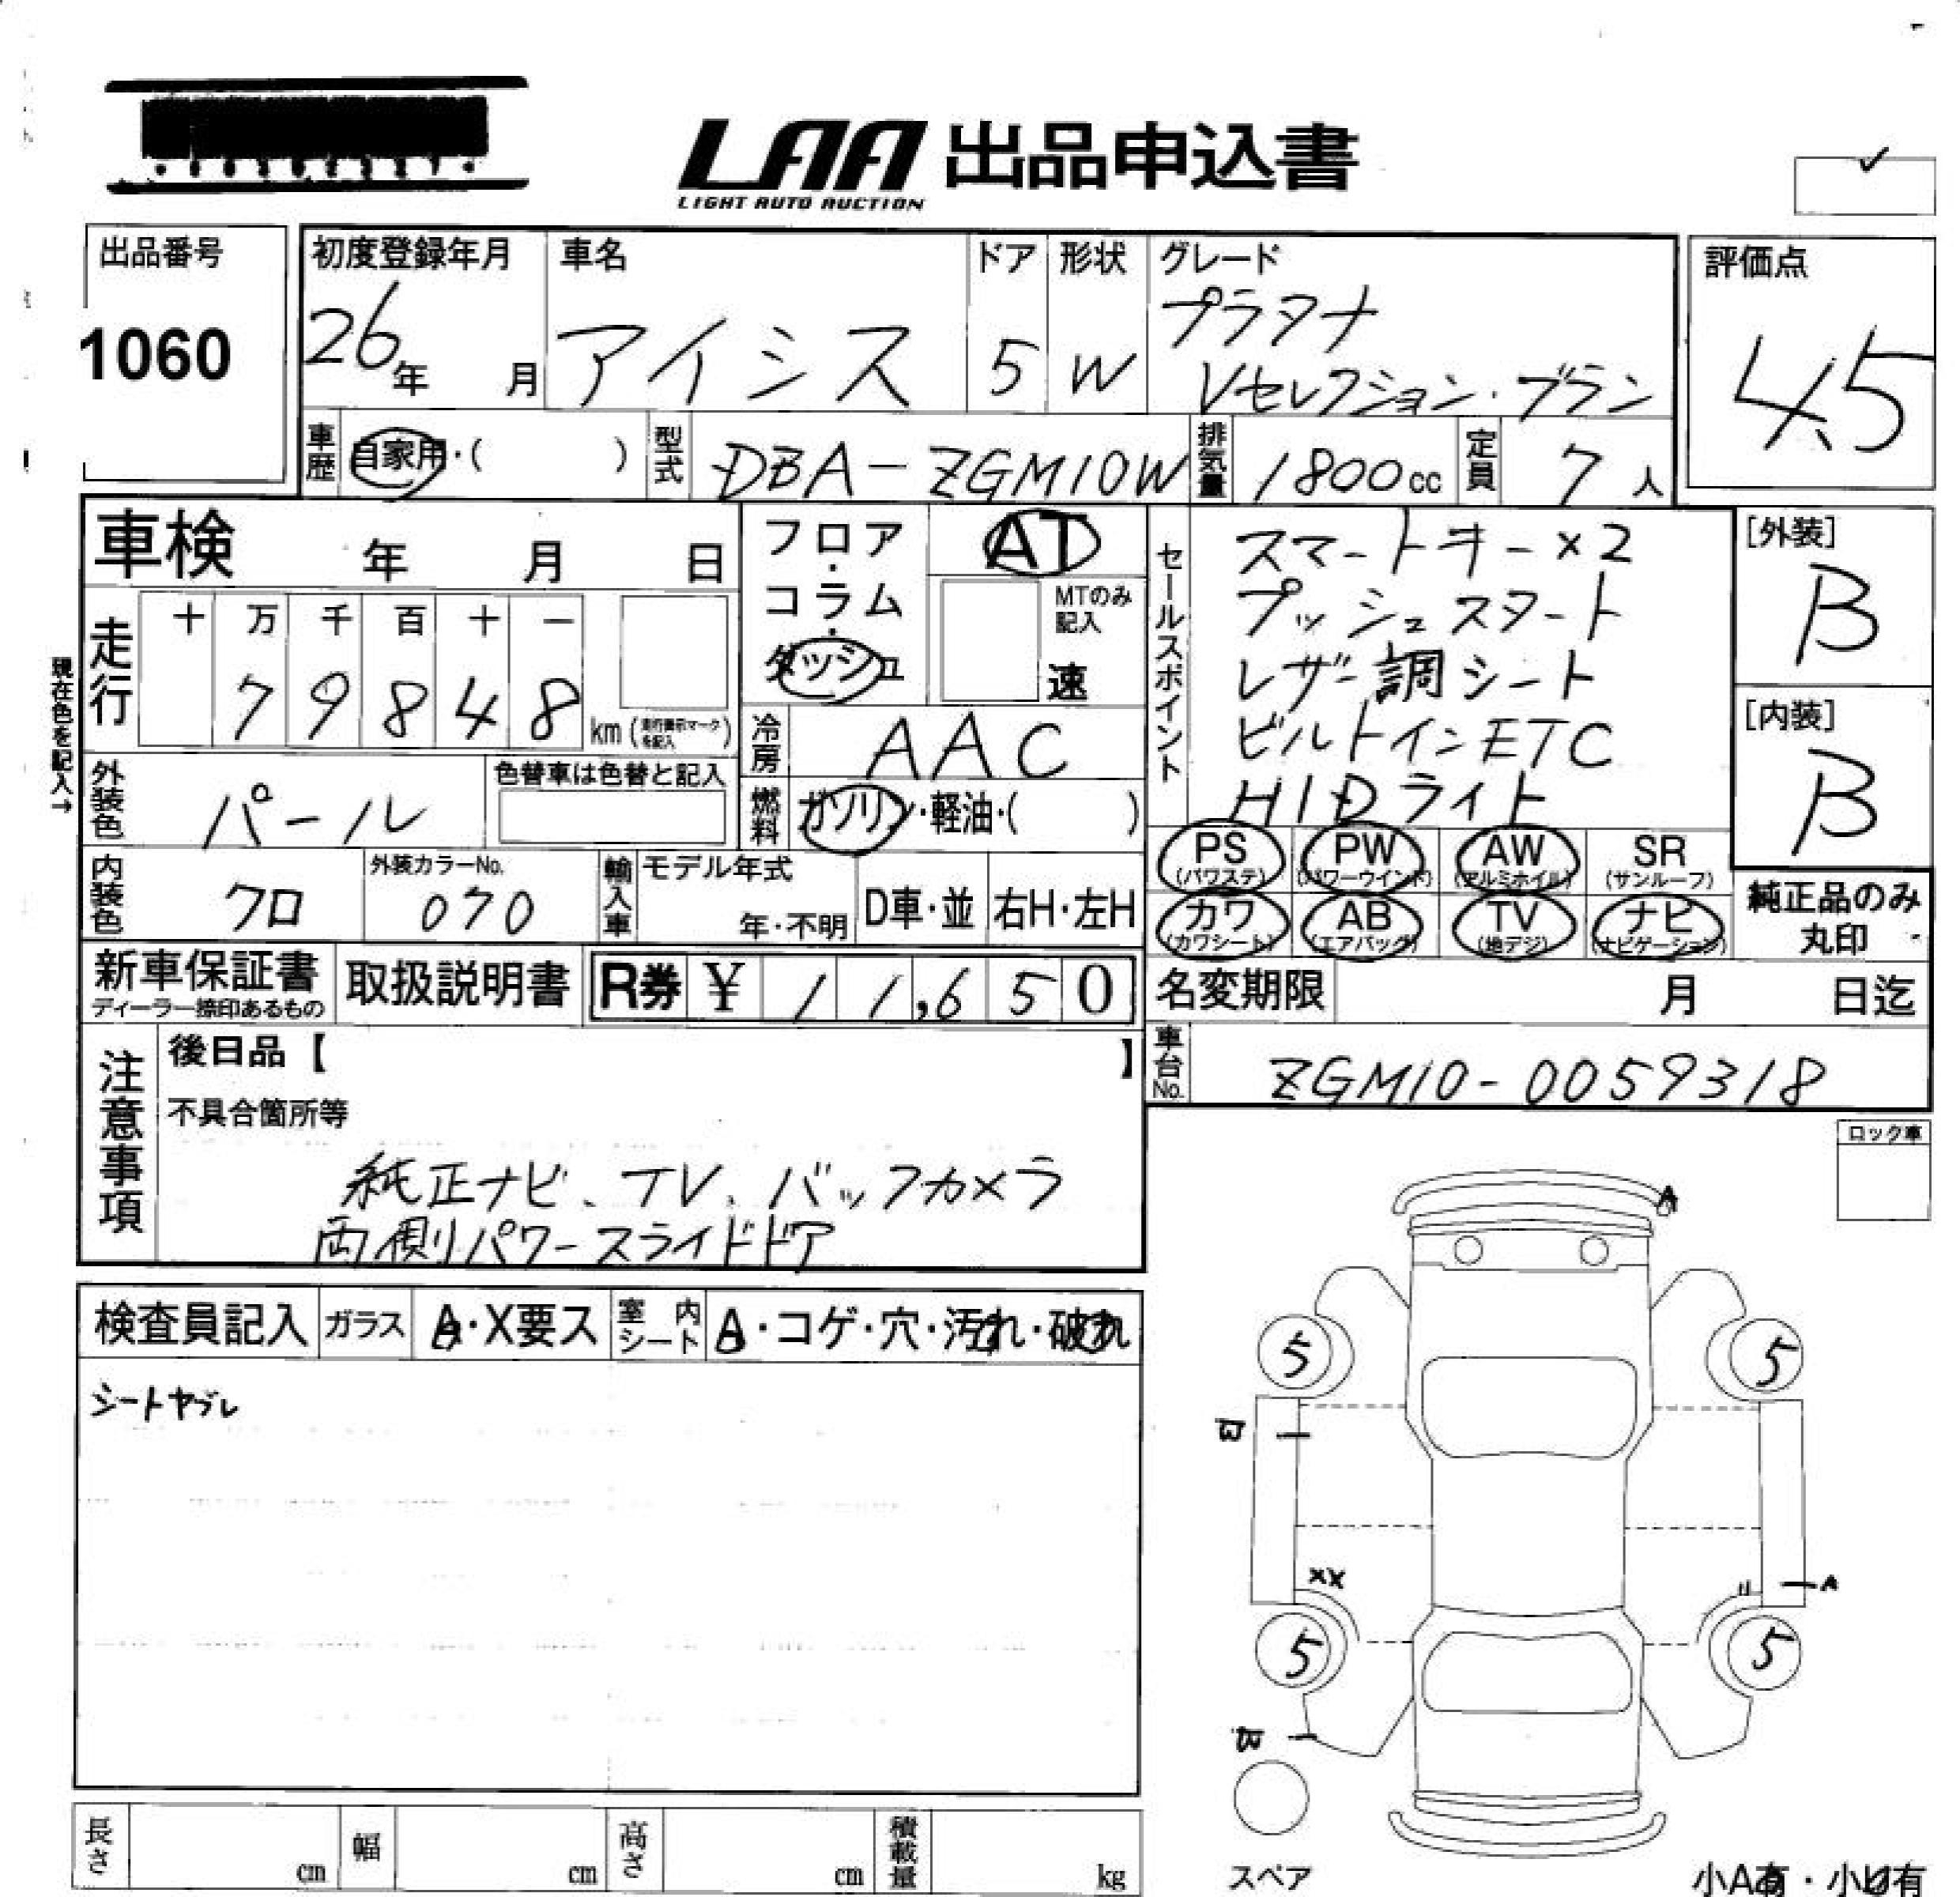 LAA 出品申込書
LIGHT AUTO AUCTION
出品番号
1060
初度登録年月
26年 月
車名
アイシス
ドア
5
形状
W
グレード
プラタナ
Vセレクション・ブラン
評価点
4.5
車歴
自家用・( )
型式
DBA-ZGM10W
排気量
1800cc
定員
7人
車検 年 月 日
フロア・
コラム・
ダッシュ
AT
MTのみ
記入
速
セールスポイント
スマートキー×2
プッシュスタート
レザー調シート
ビルトインETC
HIDライト
[外装]
B
[内装]
B
現在色を記入→
走行
十 万 千 百 十 一
7 9 8 4 8 km(走行表示マークを記入)
冷房
AAC
外装色
パール
色替車は色替と記入
燃料
ガソリン・軽油・( )
PS
(パワステ)
PW
(パワーウインド)
AW
(アルミホイル)
SR
(サンルーフ)
内装色
クロ
外装カラーNo.
070
輸入車
モデル年式
年・不明
D車・並
右H・左H
カワ
(カワシート)
AB
(エアバッグ)
TV
(地デジ)
ナビ
(ナビゲーション)
純正品のみ
丸印
新車保証書
ディーラー捺印あるもの
取扱説明書
R券 ¥ 11,650
名変期限 月 日迄
注意事項
後日品【 】
不具合箇所等
純正ナビ、TV、バックカメラ
両側パワースライドドア
車台No.
ZGM10-0059318
ロック車
検査員記入
ガラス
A・X要ス
室内シート
A・コゲ・穴・汚れ・破れ
シートヤブレ
A
5
5
B
XX
A
5
5
B
スペア
長さ cm
幅 cm
高さ cm
積載量 kg
小A有・小U有